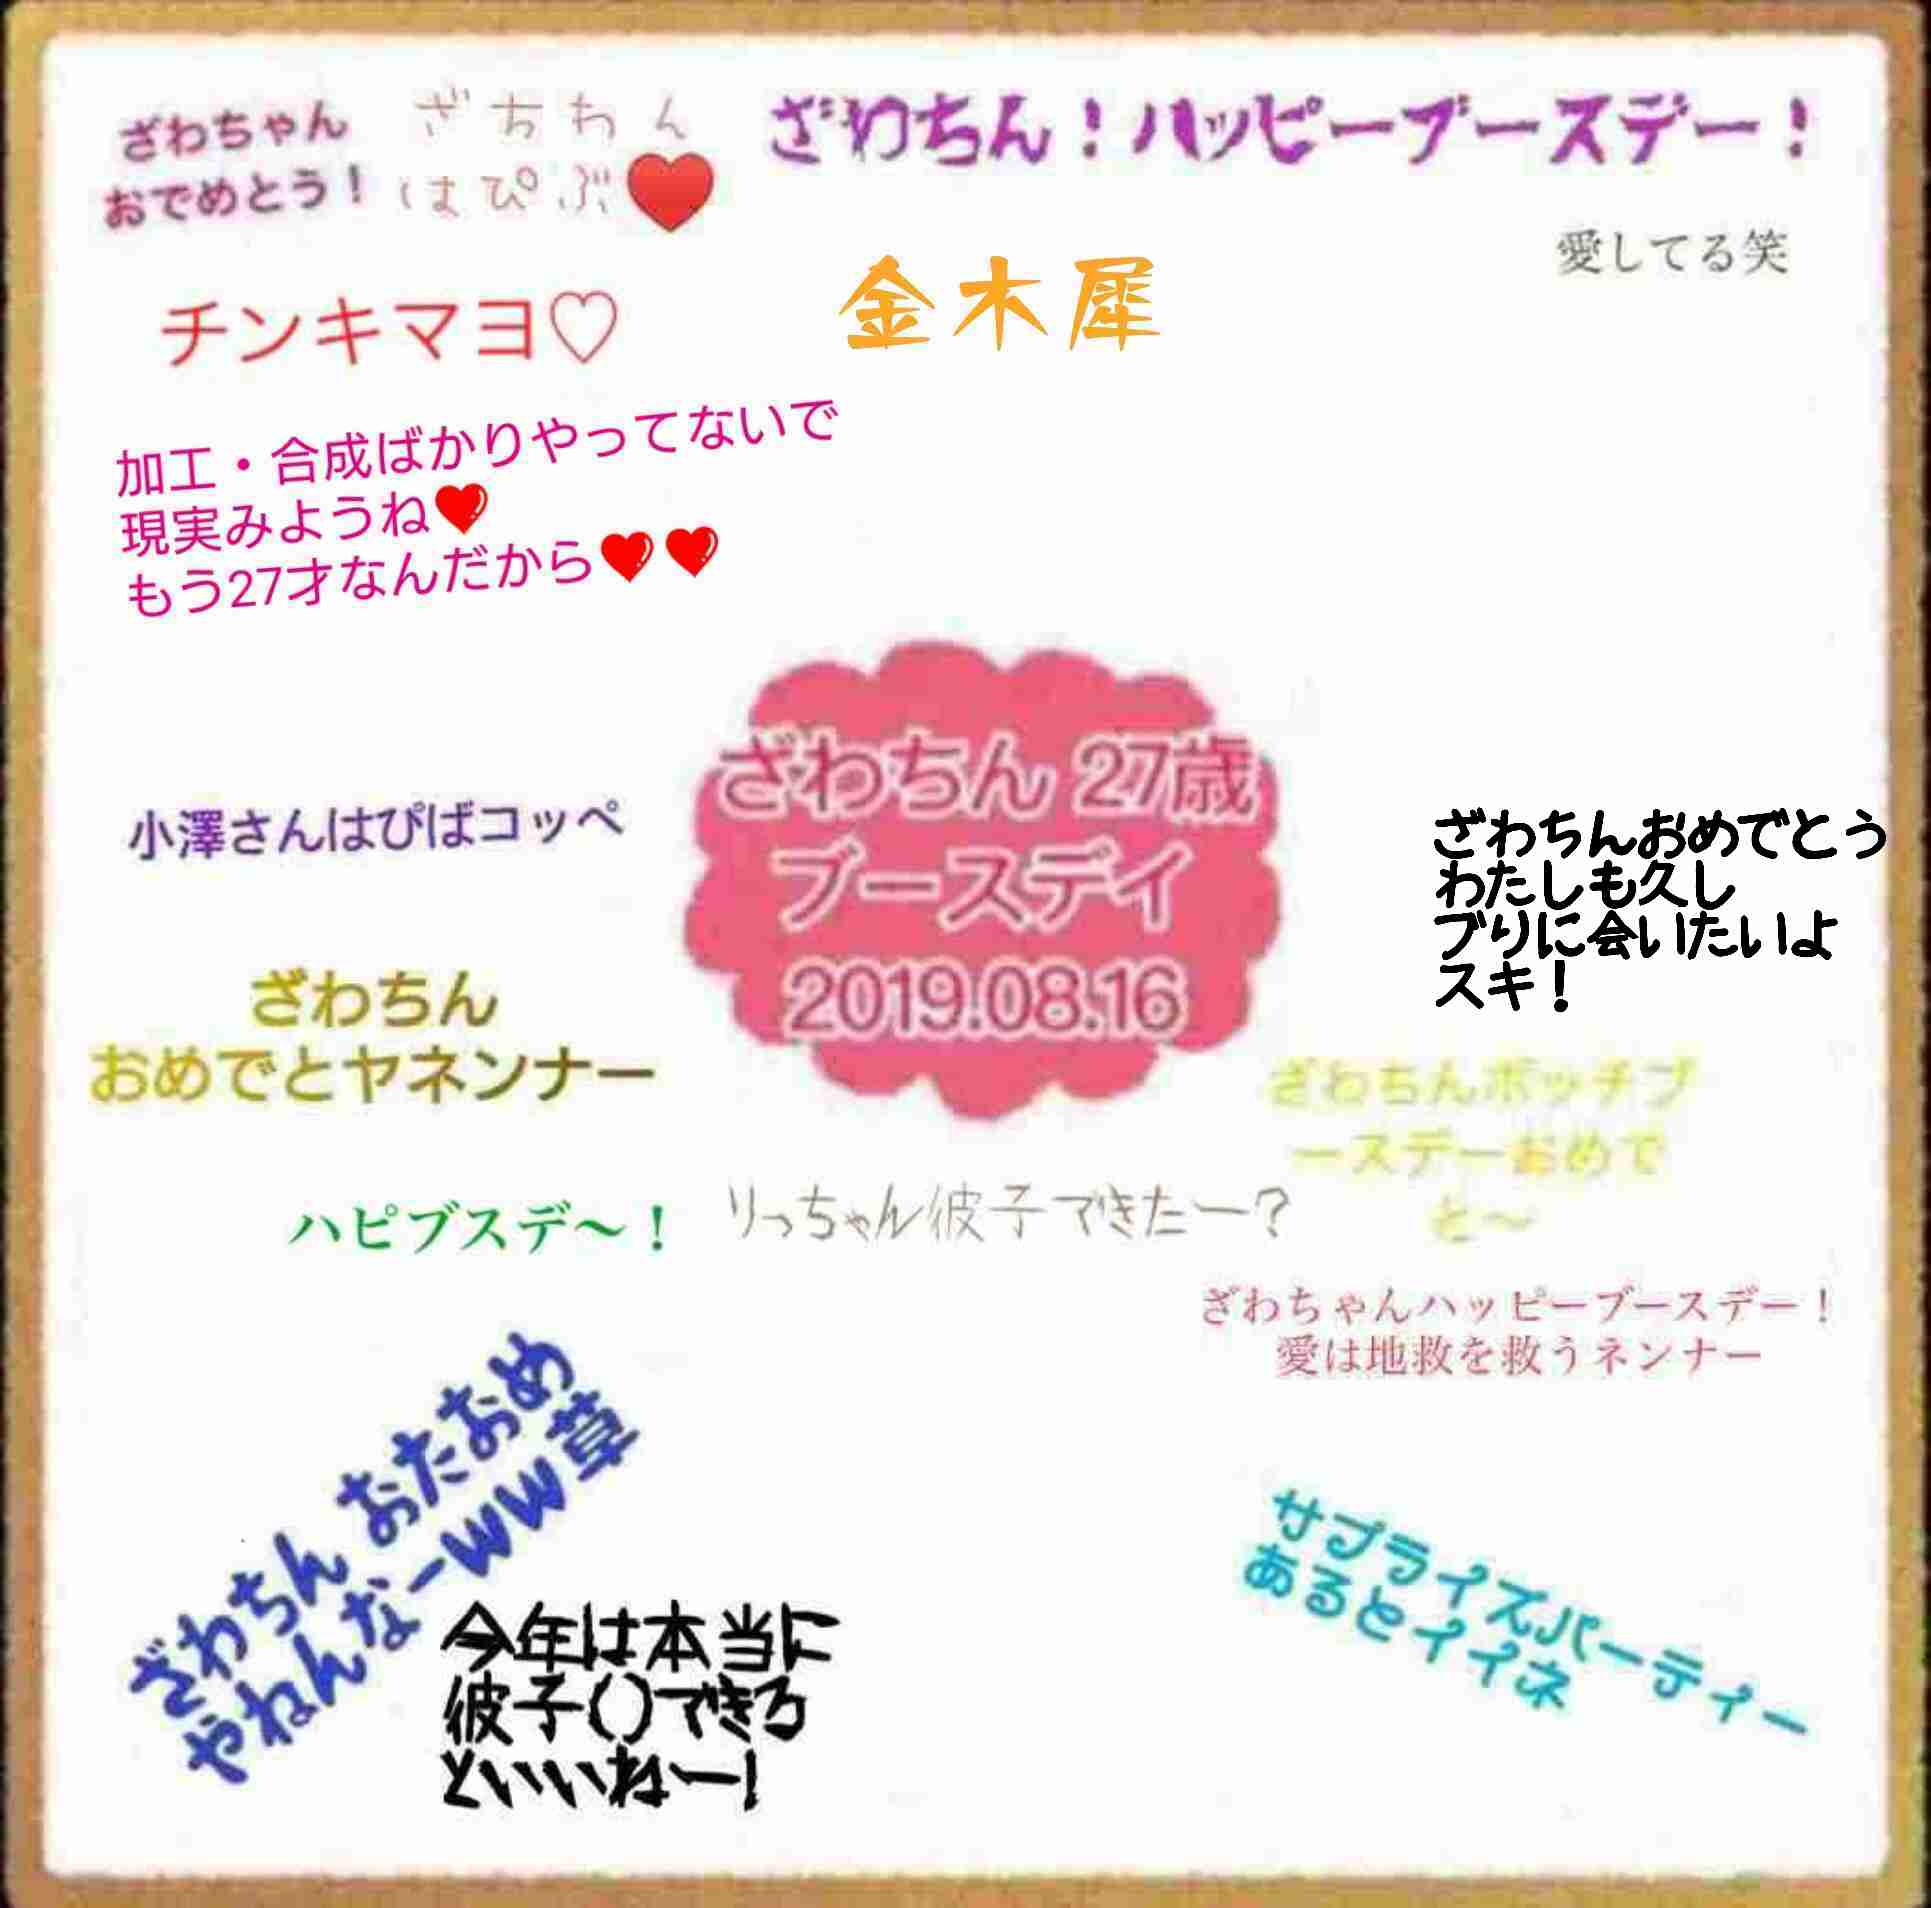 ざわちゃん
おでめとう！
ざちわん
はぴぶ♥
ざわちん！ハッピーブースデー！
愛してる笑
チンキマヨ♡
金木犀
加工・合成ばかりやってないで
現実みようね❤
もう27才なんだから❤❤
ざわちん 27歳
ブースデイ
2019.08.16
小澤さんはぴばコッペ
ざわちんおめでとう
わたしも久し
ブりに会いたいよ
スキ！
ざわちん
おめでとヤネンナー
ざわちんボッチブ
ースデーおめで
と〜
ハピブスデ〜！
りっちゃん彼子できたー？
ざわちゃんハッピーブースデー！
愛は地救を救うネンナー
ざわちん おたおめ
やねんなーWW草
今年は本当に
彼子()できろ
といいねー!
サプライズパーティー
あるとイイネ